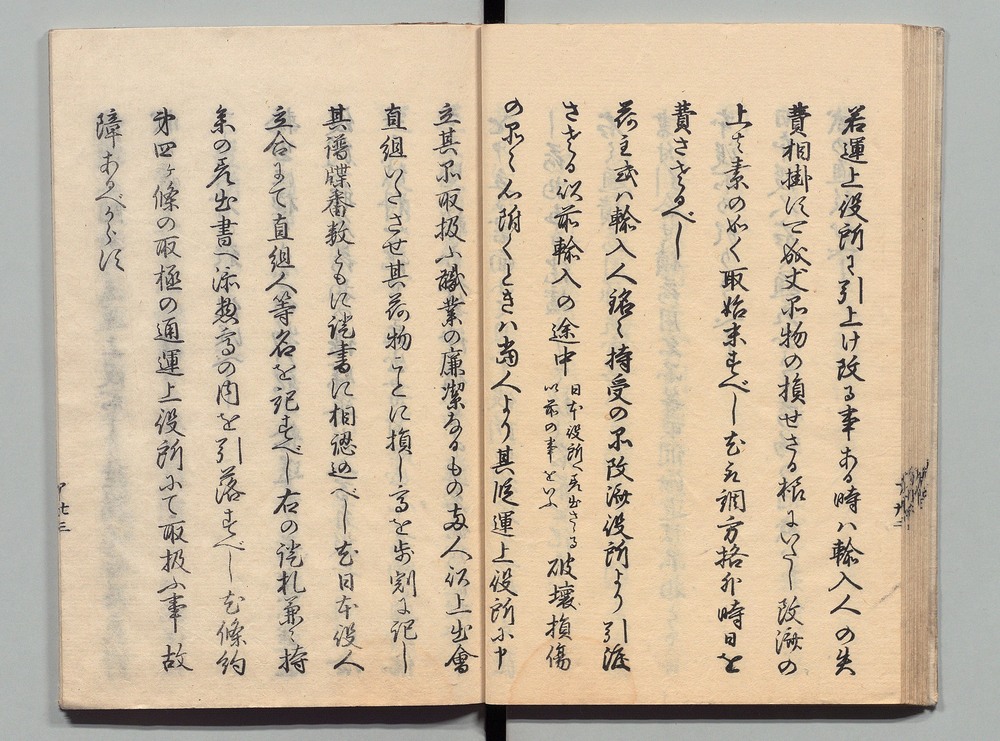 若運上役所に引上け改る事ある時ハ輸入人の失
費相掛けす可成丈品物の損せさる様にいたし改済の
上ハ素の如く取始末すへし尤取調方格外時日を
費さゝるへし
荷主或ハ輸入人銘々持受の品改済役所より引渡
さゝる以前輸入の途中
日本役所へ差出さゝる
以前の事をいふ
破壊損傷
の品々心附くときハ当人より其段運上役所に申
立其品取扱ふ職業の廉潔なるもの両人以上出会
直組いたさせ其荷物ことに損し高を歩割に記し
其譜牒番数ともに証書に相認めへし尤日本役人
立合にて直組人等名を記すへし右の証札兼而持
条の差出書へ添惣高の内を引落すへし尤条約
第四ケ條の取極の通運上役所にて取扱ふ事故
障あるへからす
甲 廿三